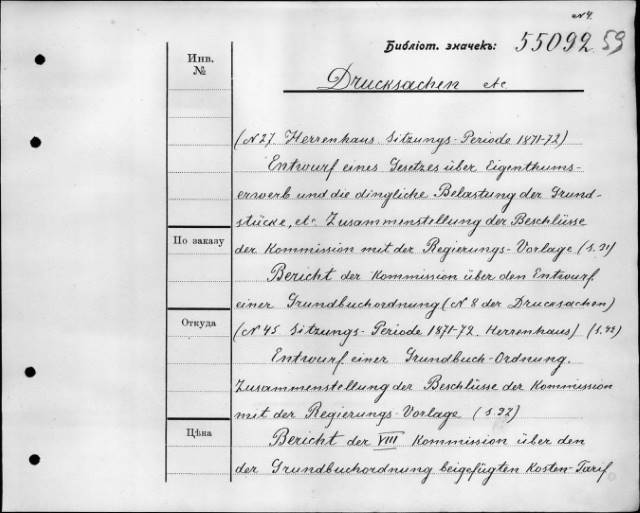 N 4.
Библіот. значекъ: 55092 59
Инв.
№
Drucksachen etc
(N 27. Herrenhaus Sitzungs-Periode 1871-72)
Entwurf eines Gesetzes über Eigenthums-
erwerb und die dingliche Belastung der Grund-
stücke, etc. Zusammenstellung der Beschlüsse
По заказу
der Kommission mit der Regierungs-Vorlage (S. 91)
Bericht der Kommission über den Entwurf
einer Grundbuchordnung (N 8 der Drucksachen)
Откуда
(N 45 Sitzungs-Periode 1871-72. Herrenhaus) (S. 92)
Entwurf einer Grundbuch-Ordnung.
Zusammenstellung der Beschlüsse der Kommission
mit der Regierungs-Vorlage (S. 92)
Цѣна
Bericht der VIII Kommission über den
der Grundbuchordnung beigefügten Kosten-Tarif